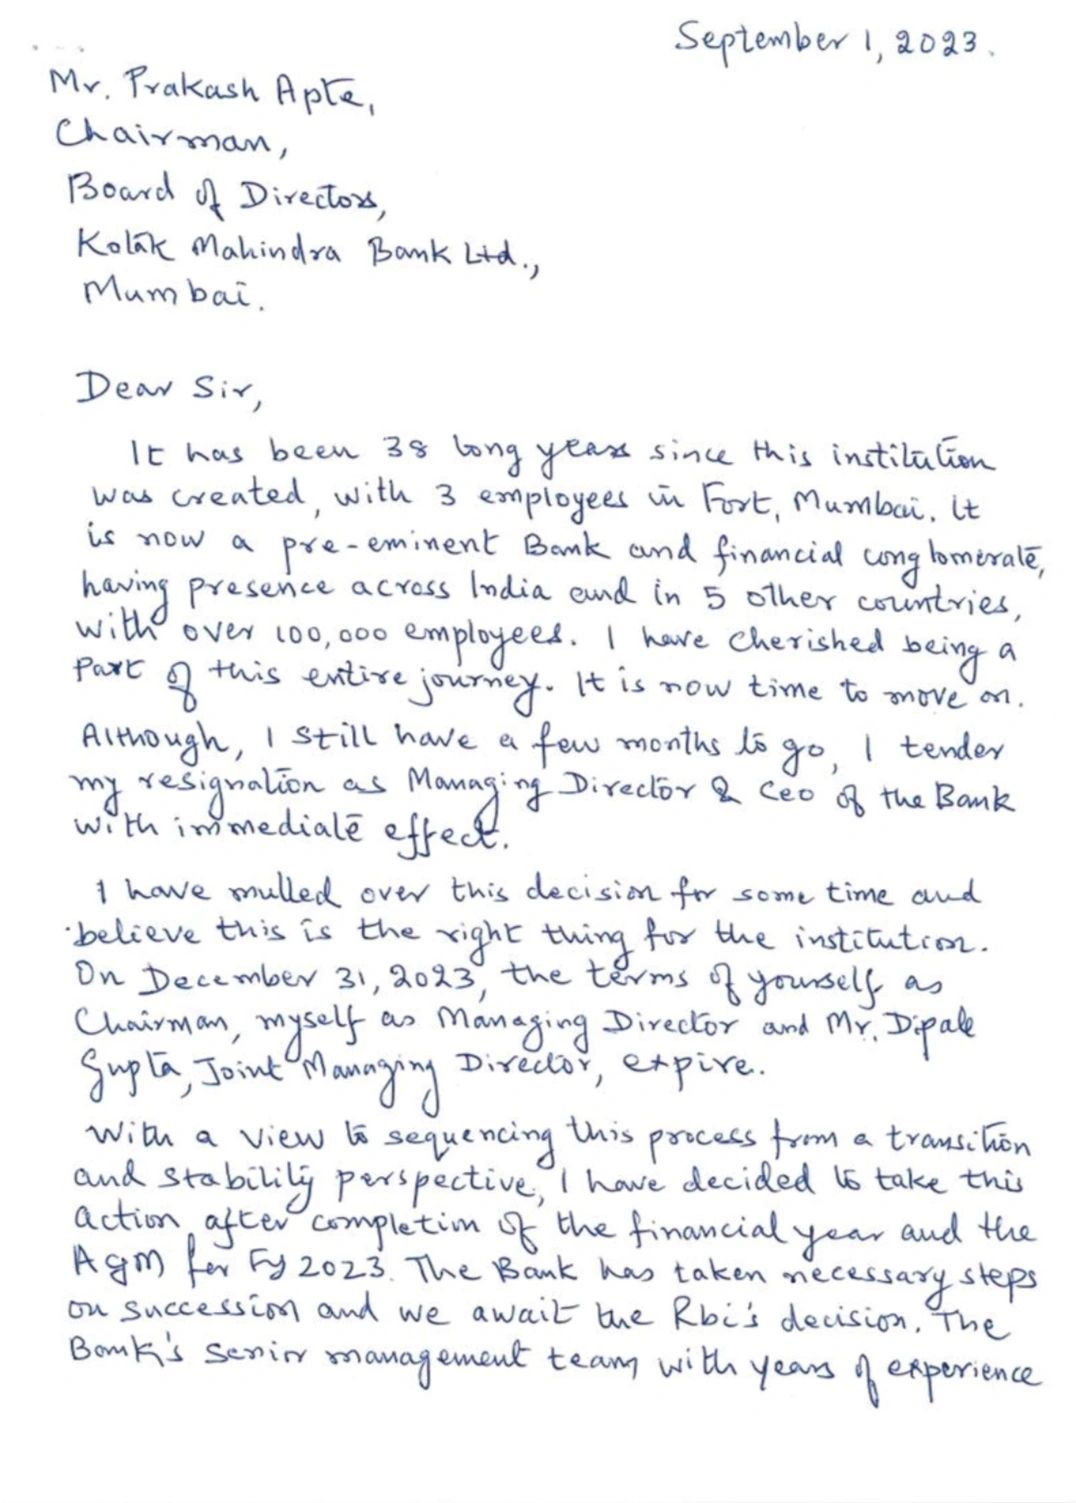 September 1, 2023.
Mr. Prakash Apte,
Chairman,
Board of Directors,
Kotak Mahindra Bank Ltd.,
Mumbai.
Dear Sir,
It has been 38 long years since this institution
was created, with 3 employees in Fort, Mumbai. It
is now a pre-eminent Bank and financial conglomerate,
having presence across India and in 5 other countries,
with over 100,000 employees. I have cherished being a
part of this entire journey. It is now time to move on.
Although, I still have a few months to go, I tender
my resignation as Managing Director & CEO of the Bank
with immediate effect.
I have mulled over this decision for some time and
believe this is the right thing for the institution.
On December 31, 2023, the terms of yourself as
Chairman, myself as Managing Director and Mr. Dipak
Gupta, Joint Managing Director, expire.
With a view to sequencing this process from a transition
and stability perspective, I have decided to take this
action after completion of the financial year and the
AGM for FY 2023. The Bank has taken necessary steps
on succession and we await the RBI's decision. The
Bank's senior management team with years of experience